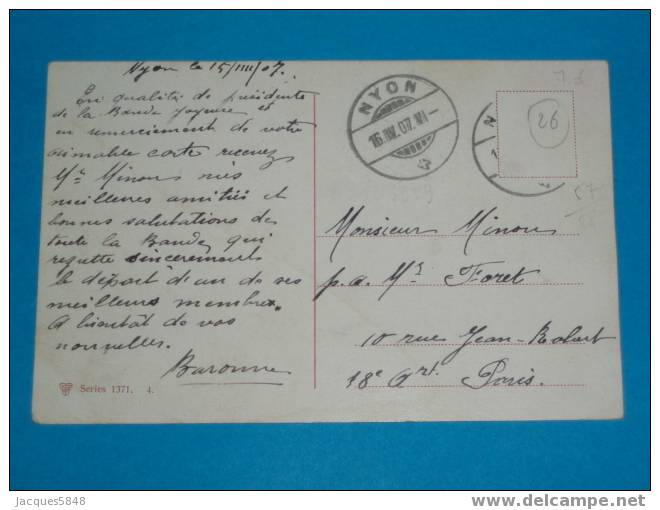 Nyon le 15/IIII/07.
En qualité de présidente
de la Bande Joyeuse et
en remerciement de votre
aimable carte recevez
Mr Minou mes
meilleures amitiés et
bonnes salutations de
toute la Bande, qui
regrette sincèrement
le départ d'un de ses
meilleurs membres.
A bientôt de vos
nouvelles.
Baronne
Series 1371. 4.
NYON
16.IV.07.VI-
N
26
57
Monsieur Minou
p.a. Mr Foret
10 rue Jean-Robert
18e Art. Paris.
Jacques5848
delcampe.net